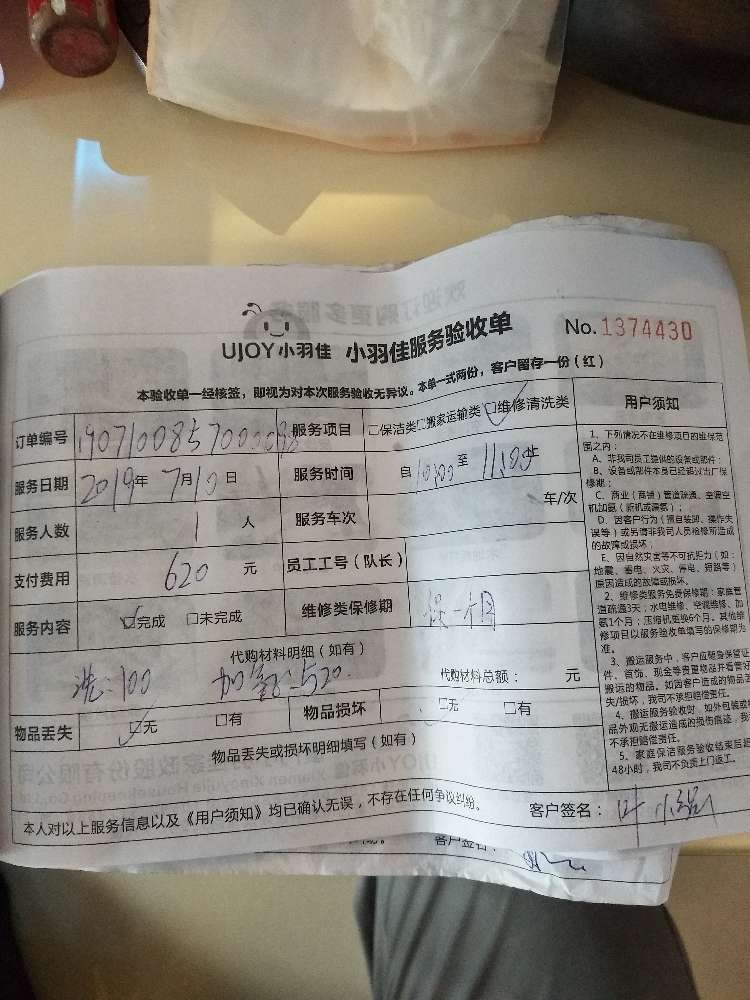 UJOY小羽佳 小羽佳服务验收单 No.1374430
本验收单一经核签，即视为对本次服务验收无异议。本单一式两份，客户留存一份（红）
订单编号 服务项目 □保洁类□搬家运输类☑维修清洗类
服务日期 2019年7月10日 服务时间 自10:00至
服务人数 1人 服务车次 车/次
支付费用 620元 员工工号（队长）
服务内容 ☑完成 □未完成 维修类保修期 保一个月
代购材料明细（如有）
洗:100 加氨:520 代购材料总额： 元
物品丢失 ☑无 □有 物品损坏 □无 □有
物品丢失或损坏明细填写（如有）
本人对以上服务信息以及《用户须知》均已确认无误，不存在任何争议纠纷。 客户签名：
用户须知
1、下列情况不在维修项目的维保范
围之内：
A、非我司员工提供的设备或部件；
B、设备或部件本身已经超过出厂保
修期；
C、商业（商铺）管道疏通、空调空
机加氨（新机或漏氨）；
D、因客户行为（擅自装卸、操作失
误等）或另请非我司人员检修所造成
的故障或损坏；
E、因自然灾害等不可抗拒力（如：
地震、雷电、火灾、停电、短路等）
原因造成的故障或损坏。
2、维修类服务免费保修期：家庭管
道疏通3天；水电维修、空调维修、加
氨1个月；压缩机更换6个月。其他维
修项目以服务验收单填写的保修期为
准。
3、搬运服务中，客户应随身保管证
件、首饰、现金等贵重物品并看管好
搬运的物品。如因客户造成的物品丢
失/损坏，我司不承担赔偿责任。
4、搬运服务验收时，如外包装或物
品外观无搬运造成的损伤痕迹，我
不承担赔偿责任。
5、家庭保洁服务验收结束后超
48小时，我司不负责上门返工。
客户签名：